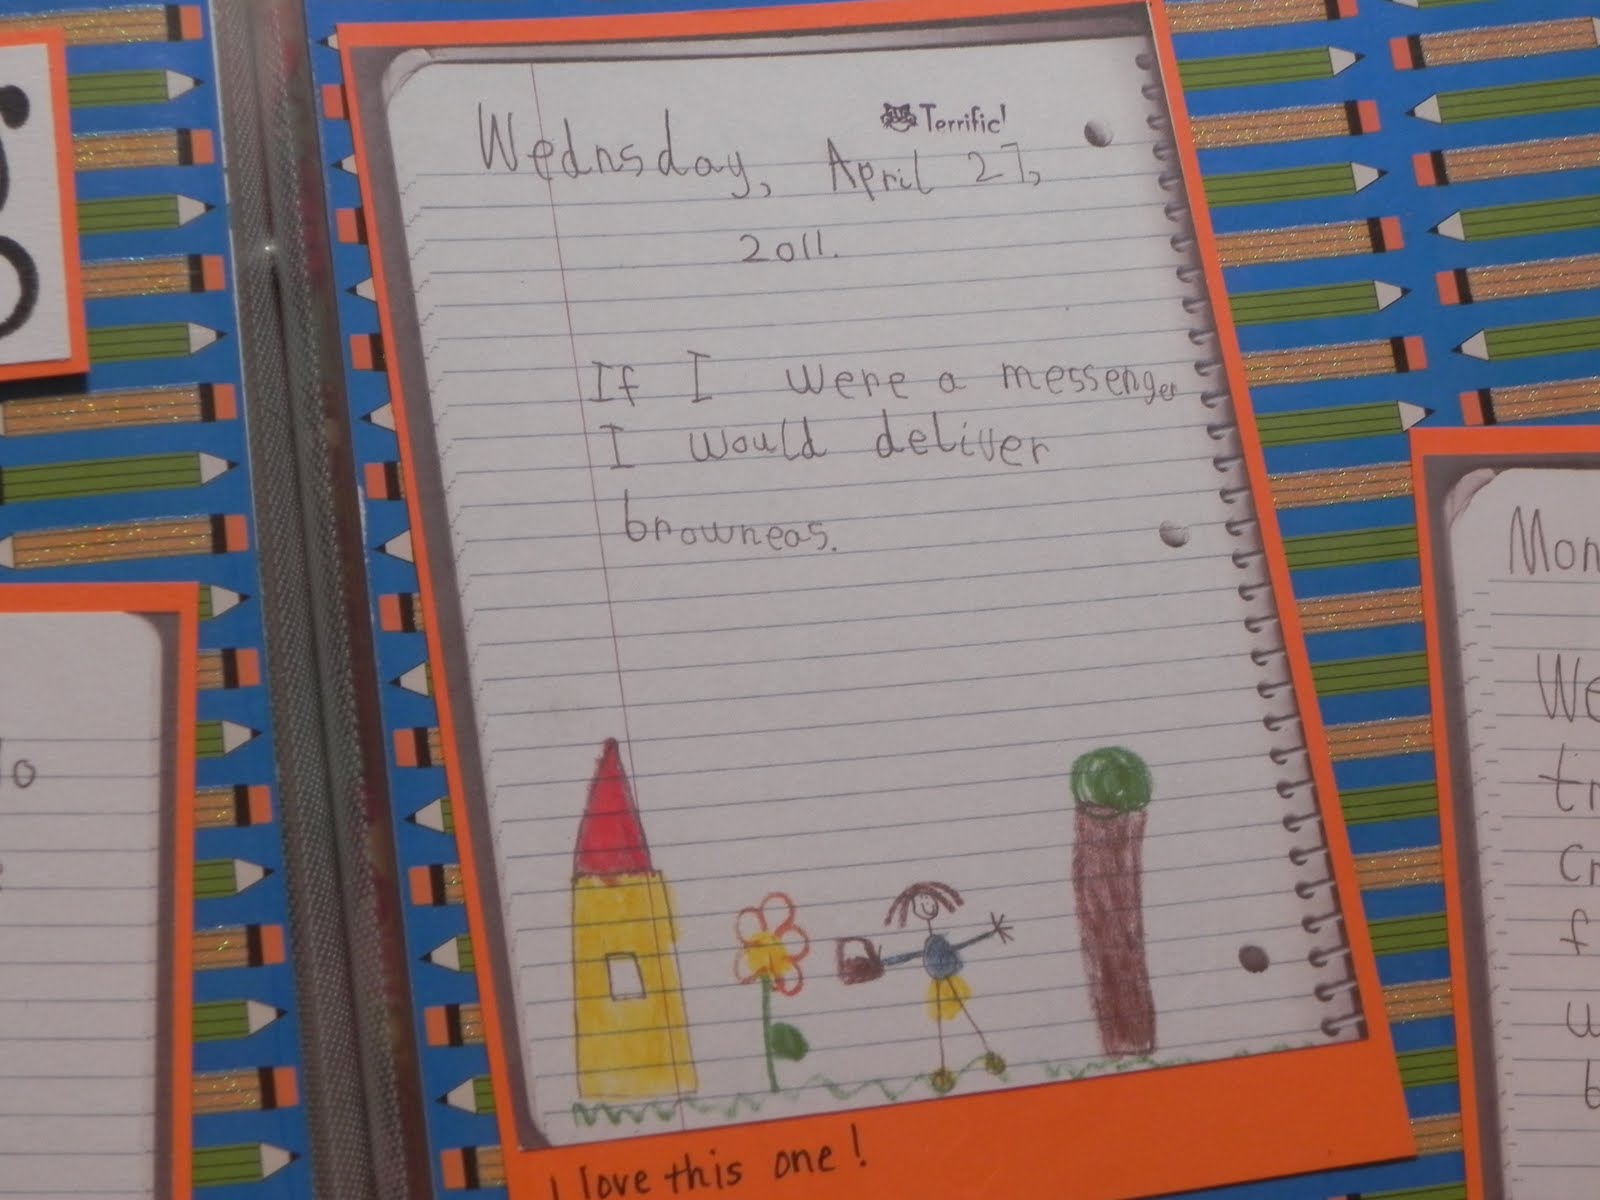 Terrific!
Wednsday, April 27,
2011.
If I were a messenger
I would deliver
browneas.
I love this one!
lo
Mon
We
tr
cr
f
w
b